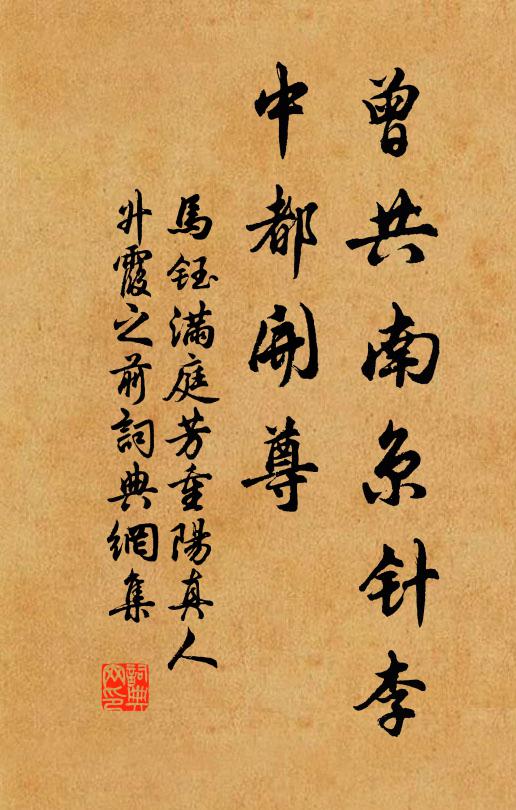 曾共南京针李
中都開尊
馬鈺滿庭芳重陽真人
升霞之前詞典網集
詞典
网印